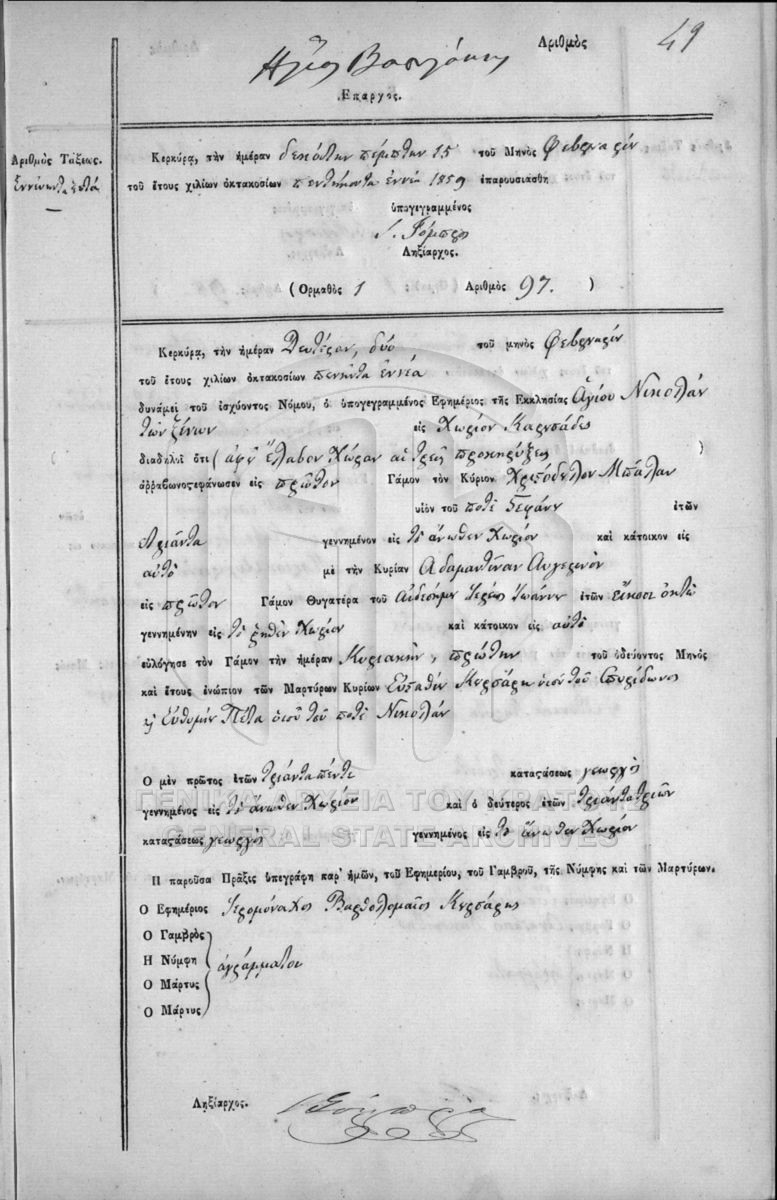 Αριθμὸς 49
Ηλίας Βασιλάκης
Επαρχος.
Αριθμὸς Τάξεως.
Εννενηντα επτά
Κερκύρα, τὴν ἡμέραν δεκάτην πέμπτην 15 τοῦ Μηνὸς Φεβρουαρίου
τοῦ ἔτους χιλίων ὀκτακοσίων πεντήκοντα ἐννέα 1859 ἐπαρουσιάσθη
ὑπογεγραμμένος
Ληξίαρχος.
( Ορμαθὸς 1 Αριθμὸς 97. )
Κερκύρα, τὴν ἡμέραν Δευτέραν, δύο τοῦ μηνὸς Φεβρουαρίου
τοῦ ἔτους χιλίων ὀκτακοσίων πενῆντα ἐννέα
δυνάμει τοῦ ἰσχύοντος Νόμου, ὁ ὑπογεγραμμένος Εφημέριος τῆς Εκκλησίας Ἁγίου Νικολάου
τῶν ξένων εἰς Χωρίον Καρυσάδες
διαδηλοῖ ὅτι ( ἀφ' οὗ ἔλαβον χώραν αἱ τρεῖς προκηρύξεις )
ἀρραβωνοςεφάνωσεν εἰς πρῶτον Γάμον τὸν Κύριον Χριστόδουλον Μπάλαν
υἱὸν τοῦ ποτὲ Στεφάνου ἐτῶν
τριάντα γεννημένον εἰς τὸ ἄνωθεν Χωρίον καὶ κάτοικον εἰς
αὐτὸ μὲ τὴν Κυρίαν Αδαμαντίναν Αυγερινοῦ
εἰς πρῶτον Γάμον Θυγατέρα τοῦ Αἰδεσίμου Ἱερέως Ἰωάννου ἐτῶν εἴκοσι ὀκτὼ
γεννημένην εἰς τὸ ῥηθὲν Χωρίον καὶ κάτοικον εἰς αὐτὸ
εὐλόγησε τὸν Γάμον τὴν ἡμέραν Κυριακὴν, πρώτην τοῦ ὁδεύοντος Μηνὸς
καὶ ἔτους ἐνώπιον τῶν Μαρτύρων Κυρίων Εὐσταθίου Κυρσάρη υἱοῦ τοῦ Σπυρίδωνος
ϗ Εὐθυμίου Πέτα υἱοῦ τοῦ ποτὲ Νικολάου
Ο μὲν πρῶτος ἐτῶν τριάντα πέντε καταςάσεως γεωργὸς
γεννημένος εἰς τὸ ἄνωθεν Χωρίον καὶ ὁ δεύτερος ἐτῶν τριάντα τριῶν
καταςάσεως γεωργὸς γεννημένος εἰς τὸ ἄνωθεν Χωρίον
Η παροῦσα Πρᾶξις ὑπεγράφη παρ' ἡμῶν, τοῦ Εφημερίου, τοῦ Γαμβροῦ, τῆς Νύμφης καὶ τῶν Μαρτύρων.
Ο Εφημέριος Ἱερομόναχος Βαρθολομαῖος Κυρσάρης
Ο Γαμβρὸς
Η Νύμφη ἀγράμματοι
Ο Μάρτυς
Ο Μάρτυς
Ληξίαρχος.
ΓΕΝΙΚΑ ΑΡΧΕΙΑ ΤΟΥ ΚΡΑΤΟΥΣ
GENERAL STATE ARCHIVES